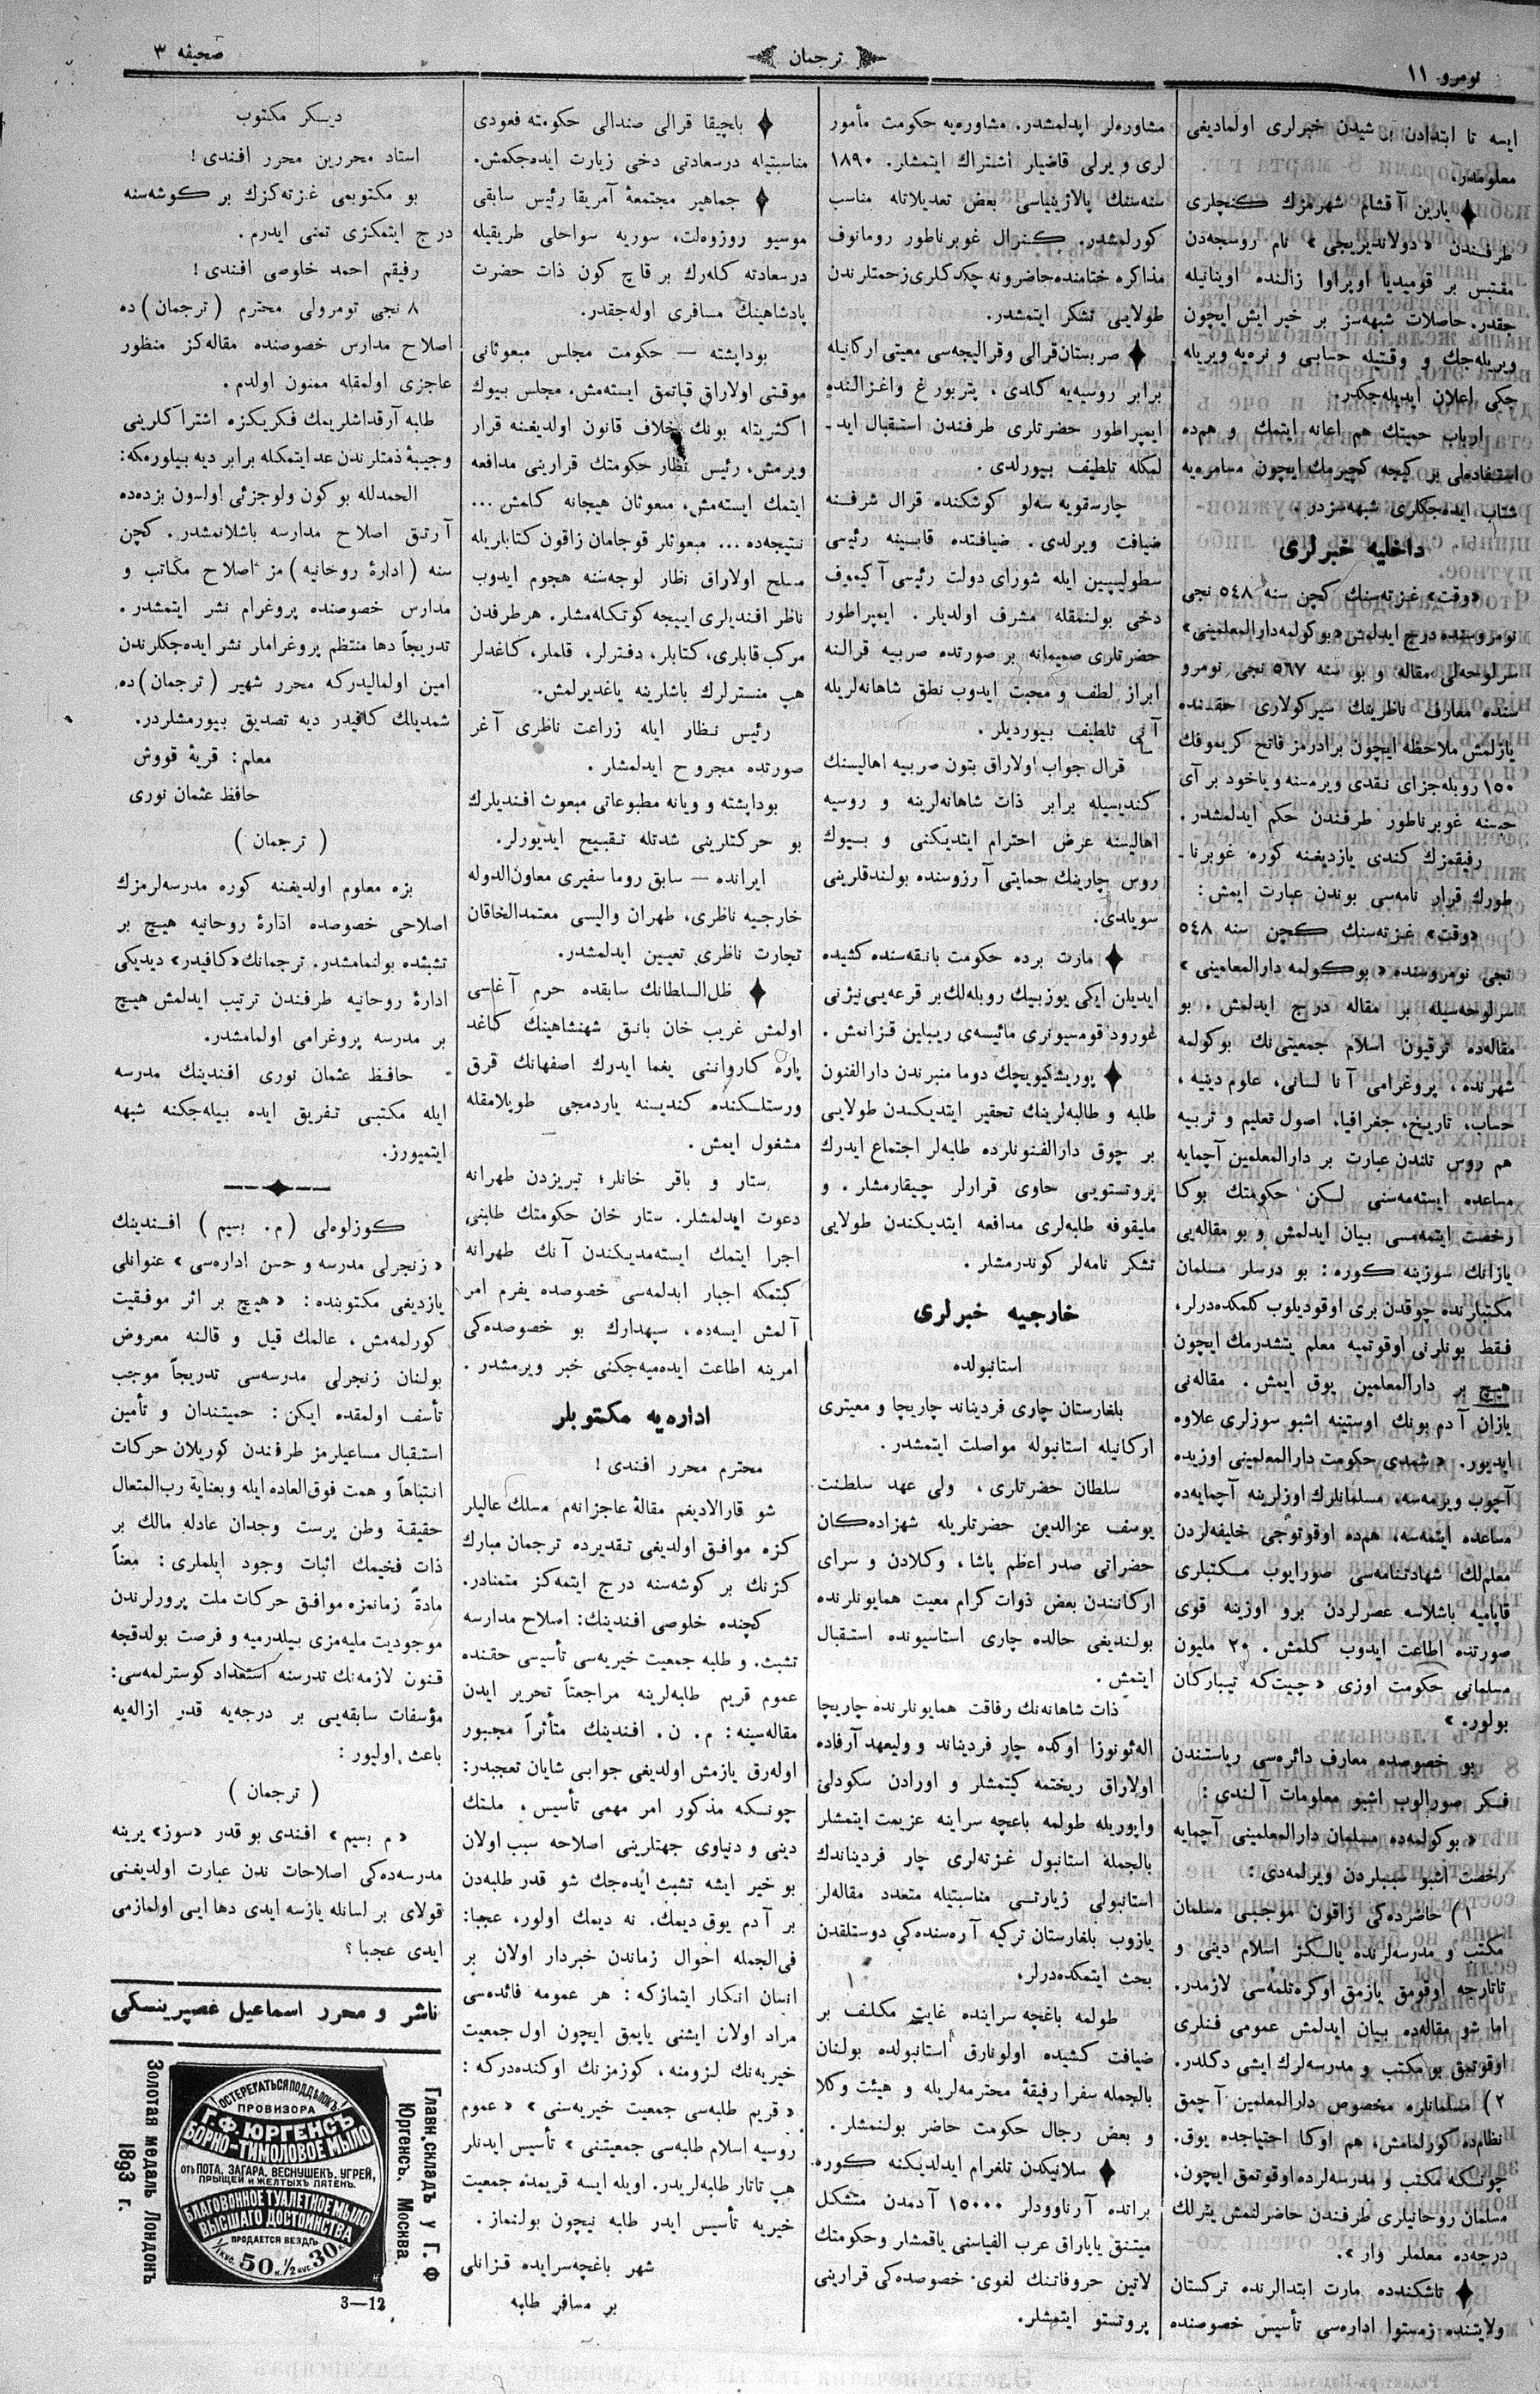 نومرو ۱۱
ترجمان
صحیفه ۳
ایسه تا ابتدادن بر شیدن خبرلری اولمادیغی
معلومدر.
یارین آقشام شهرمزك كنجلری
طرفندن «دولاندیریجی» نام روسجه‌دن
مقتبس بر قومیدیا اوپراوا زالنده اوینانیله
جقدر. حاصلات شبهه‌سز بر خیر ایش ایچون
ویریله‌جك و وقتیله حسابی و نره‌یه ویریله
جكی اعلان ایدیله‌جكدر.
ارباب حمیتك هم اعانه ایتمك و هم‌ده
استفاده‌لی بر كیجه كچیرمك ایچون مسامره‌یه
شتاب ایده‌جكلری شبهه‌سزدر.
داخلیه خبرلری
«وقت» غزته‌سنك كچن سنه ۵٤۸ نجی
نومروسنده درج ایدلمش «بوكولمه دارالمعلمینی»
سرلوحه‌لی مقاله و بو سنه ۵٦۷ نجی نومرو
سنده معارف ناظرینك سیركولاری حقنده
یازلمش ملاحظه ایچون برادرمز فاتح كریموفك
۱۵۰ روبله جزای نقدی ویرمسنه ویاخود بر آی
حبسنه غوبرناطور طرفندن حكم ایدلمشدر.
رفیقمزك كندی یازدیغنه كوره غوبرنا-
طورك قرار نامه‌سی بوندن عبارت ایمش:
«وقت» غزته‌سنك كچن سنه ۵٤۸
نجی نومروسنده «بوكولمه دارالمعلمینی»
سرلوحه‌سیله بر مقاله درج ایدلمش. بو
مقاله‌ده ترقیون اسلام جمعیتی‌نك بوكولمه
شهرنده، پروغرامی آنا لسانی، علوم دینیه،
حساب، تاریخ، جغرافیا، اصول تعلیم و تربیه
هم روس تلندن عبارت بر دارالمعلمین آچمایه
مساعده ایسته‌مه‌سنی لكن حكومتك بوكا
رخصت ایتمه‌مسی بیان ایدلمش و بو مقاله‌یی
یازانك سوزینه كوره: بو درسلر مسلمان
مكتبلرنده چوقدن بری اوقودیلوب كلمكده‌درلر،
فقط بونلرنی اوقوتمیه معلم یتشدرمك ایچون
هیچ بر دارالمعلمین یوق ایمش. مقاله‌نی
یازان آدم بونك اوستینه اشبو سوزلری علاوه
ایدیور. «شمدی حكومت دارالمعلمینی اوزیده
آچوب ویرمه‌سه، مسلمانلرك اوزلرینه آچمایه‌ده
مساعده ایتمه‌سه، هم‌ده اوقوتوجی خلیفه‌لردن
معلم‌لك شهادتنامه‌سی صورایوب مكتبلری
قاپامیه باشلاسه عصرلردن برو اوزینه قوی
صورتنده اطاعت ایدوب كلمش. ۲۰ ملیون
مسلمانی حكومت اوزی «چیت‌كه تیباركان
بولور.»
بو خصوصده معارف دائره‌سی ریاستندن
فكر صورالوب اشبو معلومات آلندی:
«بوكولمه‌ده مسلمان دارالمعلمینی آچمایه
رخصت اشبو سببلردن ویرلمه‌دی:
۱) حاضرده‌كی زاقون موجبی مسلمان
مكتب و مدرسه‌لرنده یالكز اسلام دینی و
تاتارجه اوقومق یازمق اوكره‌تلمه‌سی لازمدر.
اما شو مقاله‌ده بیان ایدلمش عمومی فنلری
اوقوتمق بو مكتب و مدرسه‌لرك ایشی دكلدر.
۲) مسلمانلره مخصوص دارالمعلمین آچمق
نظامده كورلمامش، هم اوكا احتیاجده یوق.
چونكه مكتب و مدرسه‌لرده اوقوتمق ایچون،
مسلمان روحانیلری طرفندن حاضرلنمش یترلك
درجه‌ده معلملر وار».
تاشكندده مارت ابتدالرنده تركستان
ولایتنده زمستوا اداره‌سی تأسیس خصوصنده
مشاوره‌لر ایدلمشدر. مشاوره‌یه حكومت مأمور
لری و یرلی قاضیلر اشتراك ایتمشلر. ۱۸۹۰
سنه‌سنك پالاژینیاسی بعض تعدیلاتله مناسب
كورلمشدر. كنرال غوبرناطور رومانوف
مذاكره ختامنده حاضرونه چكدكلری زحمتلرندن
طولایی تشكر ایتمشدر.
صربستان قرالی و قرالیچه‌سی معیتی اركانیله
برابر روسیه‌یه كلدی، پتربورغ واغزالنده
ایمپراطور حضرتلری طرفندن استقبال اید-
لمكله تلطیف بیورلدی.
چارسقویه سه‌لو كوشكنده قرال شرفنه
ضیافت ویرلدی. ضیافتده قابینه رئیسی
سطولیپین ایله شورای دولت رئیسی آكیموف
دخی بولنمقله مشرف اولدیلر. ایمپراطور
حضرتلری صمیمانه بر صورتده صربیه قرالنه
ابراز لطف و محبت ایدوب نطق شاهانه‌لریله
آنی تلطیف بیوردیلر.
قرال جواب اولاراق بتون صربیه اهالیسنك
كندیسیله برابر ذات شاهانه‌لرینه و روسیه
اهالیسنه عرض احترام ایتدیكنی و بیوك
روس چارینك حمایتی آرزوسنده بولندقلرینی
سویلدی.
مارت برده حكومت بانقه‌سنده كشیده
ایدیلن ایكی یوزبیك روبله‌لك بر قرعه‌یی نیژنی
غورود قومسیونری مائیسه‌ی ریبلین قزانمش.
پوریشكیویچك دوما منبرندن دارالفنون
طلبه و طالبه‌لرینك تحقیر ایتدیكندن طولایی
بر چوق دارالفنونلرده طلبه‌لر اجتماع ایدرك
پروتستویی حاوی قرارلر چیقارمشلر. و
ملیقوفه طلبه‌لری مدافعه ایتدیكندن طولایی
تشكر نامه‌لر كوندرمشلر.
خارجیه خبرلری
استانبولده
بلغارستان چاری فردیناند چاریچا و معیتری
اركانیله استانبوله مواصلت ایتمشدر.
سلطان حضرتلری، ولی عهد سلطنت
یوسف عزالدین حضرتلریله شهزاده‌كان
حضراتی صدر اعظم پاشا، وكلادن و سرای
اركانندن بعض ذوات كرام معیت همایونلرنده
بولندیغی حالده چاری استاسیونده استقبال
ایتمش.
ذات شاهانه‌نك رفاقت همایونلرنده چاریچا
اله‌ئونوزا اوكده چار فردیناند و ولیعهد آرقاده
اولاراق ریختمه كیتمشلر و اورادن سكودلی
واپوریله طولمه باغچه سراینه عزیمت ایتمشلر
بالجمله استانبول غزته‌لری چار فردیناندك
استانبولی زیارتی مناسبتیله متعدد مقاله‌لر
یازوب بلغارستان تركیه آره‌سنده‌كی دوستلقدن
بحث ایتمكده‌درلر،
طولمه باغچه سراینده غایت مكلف بر
ضیافت كشیده اولونارق استانبولده بولنان
بالجمله سفرا رفیقهٔ محترمه‌لریله و هیئت وكلا
و بعض رجال حكومت حاضر بولنمشلر.
سلانیكدن تلغرام ایدلدیكنه كوره
براتده آرناوودلر ۱۵۰۰۰ آدمدن متشكل
میتنق یاپاراق عرب الفباسنی یاقمشلر وحكومتك
لاتین حروفاتنك لغوی خصوصده‌كی قرارینی
پروتستو ایتمشلر.
باچیقا قرالی صندالی حكومته قعودی
مناسبتیله درسعادتی دخی زیارت ایده‌جكمش.
جماهیر مجتمعهٔ آمریقا رئیس سابقی
موسیو روزوه‌لت، سوریه سواحلی طریقیله
درسعادته كله‌رك بر قاچ كون ذات حضرت
پادشاهینك مسافری اوله‌جقدر.
بوداپشته — حكومت مجلس مبعوثانی
موقتی اولاراق قپاتمق ایسته‌مش. مجلس بیوك
اكثریتله بونك خلاف قانون اولدیغنه قرار
ویرمش، رئیس نظار حكومتك قرارینی مدافعه
ایتمك ایسته‌مش، مبعوثان هیجانه كلمش...
نتیجه‌ده... مبعوثلر قوجامان زاقون كتابلریله
مسلح اولاراق نظار لوجه‌سنه هجوم ایدوب
ناظر افندیلری ایییجه كوتكله‌مشلر. هر طرفدن
مركب قابلری، كتابلر، دفترلر، قلملر، كاغدلر
هپ منسترلرك باشلرینه یاغدیرلمش.
رئیس نظار ایله زراعت ناظری آغر
صورتده مجروح ایدلمشلر.
بوداپشته و ویانه مطبوعاتی مبعوث افندیلرك
بو حركتلرینی شدتله تقبیح ایدیورلر.
ایرانده — سابق روما سفیری معاون‌الدوله
خارجیه ناظری، طهران والیسی معتمدالخاقان
تجارت ناظری تعیین ایدلمشدر.
ظل‌السلطانك سابقده حرم آغاسی
اولمش غریب خان بانق شهنشاهینك كاغد
پاره كاروانی یغما ایدرك اصفهانك قرق
ورستلكنده كندیسنه یاردمجی طوپلامقله
مشغول ایمش.
ستار و باقر خانلر؛ تبریزدن طهرانه
دعوت ایدلمشلر. ستار خان حكومتك طلبنی
اجرا ایتمك ایسته‌مدیكندن آنك طهرانه
كیتمكه اجبار ایدلمه‌سی خصوصده یفرم امر
آلمش ایسه‌ده، سپهدارك بو خصوصده‌كی
امرینه اطاعت ایده‌میه‌جكنی خبر ویرمشدر.
اداره‌یه مكتوبلر
محترم محرر افندی!
شو قارالادیغم مقالهٔ عاجزانه‌م مسلك عالیلر
كزه موافق اولدیغی تقدیرده ترجمان مبارك
كزنك بر كوشه‌سنه درج ایتمه‌كز متمنادر.
كچنده خلوصی افندینك: اصلاح مدارسه
تشبث. و طلبه جمعیت خیریه‌سی تأسیسی حقنده
عموم قریم طلبه‌لرینه مراجعتاً تحریر ایدن
مقاله‌سینه: م. ن. افندینك متأثراً مجبور
اوله‌رق یازمش اولدیغی جوابی شایان تعجبدر:
چونكه مذكور امر مهمی تأسیس، ملتك
دینی و دنیاوی جهتلرینی اصلاحه سبب اولان
بو خیر ایشه تشبث ایده‌جك شو قدر طلبه‌دن
بر آدم یوق دیمك. نه دیمك اولور، عجبا:
فی‌الجمله احوال زماندن خبردار اولان بر
انسان انكار ایتمازكه: هر عمومه فائده‌سی
مراد اولان ایشنی یاپمق ایچون اول جمعیت
خیریه‌نك لزومنه، كوزمزنك اوكنده‌دركه:
«قریم طلبه‌سی جمعیت خیریه‌سنی» «عموم
روسیه اسلام طلبه‌سی جمعیتنی» تأسیس ایدنلر
هپ تاتار طلبه‌لریدر. اویله ایسه قریمده جمعیت
خیریه تأسیس ایدر طلبه نیچون بولنماز.
شهر باغچه‌سرایده قزانلی
بر مسافر طلبه
دیكر مكتوب
استاد محررین محرر افندی!
بو مكتوبمی غزته‌كزك بر كوشه‌سنه
درج ایتمكزی تمنی ایدرم.
رفیقم احمد خلوصی افندی!
۸ نجی نومرولی محترم (ترجمان) ده
اصلاح مدارس خصوصنده مقاله‌كز منظور
عاجزی اولمقله ممنون اولدم.
طلبه آرقداشلریمك فكریكزه اشتراكلرینی
وجیبهٔ ذمتلرندن عد ایتمكله برابر دیه بیلورمكه:
الحمدلله بو كون ولوجزئی اولسون بزده‌ده
آرتق اصلاح مدارسه باشلانمشدر. كچن
سنه (ادارهٔ روحانیه) مز اصلاح مكاتب و
مدارس خصوصنده پروغرام نشر ایتمشدر.
تدریجاً دها منتظم پروغراملر نشر ایده‌جكلرندن
امین اولمالیدركه محرر شهیر (ترجمان) ده،
شمدیلك كافیدر دیه تصدیق بیورمشلردر.
معلم: قریهٔ قووش
حافظ عثمان نوری
(ترجمان)
بزه معلوم اولدیغنه كوره مدرسه‌لرمزك
اصلاحی خصوصده ادارهٔ روحانیه هیچ بر
تشبثده بولنمامشدر. ترجمانك «كافیدر» دیدیكی
ادارهٔ روحانیه طرفندن ترتیب ایدلمش هیچ
بر مدرسه پروغرامی اولمامشدر.
حافظ عثمان نوری افندینك مدرسه
ایله مكتبی تفریق ایده بیله‌جكنه شبهه
ایتمیورز.
كوزلوه‌لی (م. بسیم) افندینك
«زنجرلی مدرسه و حسن اداره‌سی» عنوانلی
یازدیغی مكتوبنده: «هیچ بر اثر موفقیت
كورلمه‌مش، عالمك قیل و قالنه معروض
بولنان زنجرلی مدرسه‌سی تدریجاً موجب
تأسف اولمقده ایكن: حمیتندان و تأمین
استقبال مساعیلرمز طرفندن كوریلان حركات
انتباهاً و همت فوق‌العاده ایله وبعنایة رب‌المتعال
حقیقة وطن پرست وجدان عادله مالك بر
ذات فخیمك اثبات وجود ایلملری: معناً
مادةً زمانمزه موافق حركات ملت پرورلرندن
موجودیت ملیه‌مزی بیلدرمیه و فرصت بولدقچه
فنون لازمه‌نك تدرسنه استعداد كوسترلمه‌سی:
مؤسفات سابقه‌یی بر درجه‌یه قدر ازاله‌یه
باعث اولیور:
(ترجمان)
«م بسیم» افندی بو قدر «سوز» یرینه
مدرسه‌ده‌كی اصلاحات ندن عبارت اولدیغنی
قولای بر لسانله یازسه ایدی دها ایی اولمازمی
ایدی عجبا؟
ناشر و محرر اسماعیل غصپرینسكی
Главн. складъ у Г. Ф.
Юргенсъ. Москва.
ОСТЕРЕГАТЬСЯ ПОДДѢЛОКЪ!
ПРОВИЗОРА
Г. Ф. ЮРГЕНСЪ
БОРНО-ТИМОЛОВОЕ МЫЛО
отъ ПОТА, ЗАГАРА, ВЕСНУШЕКЪ, УГРЕЙ,
ПРЫЩЕЙ И ЖЕЛТЫХЪ ПЯТЕНЪ.
БЛАГОВОННОЕ ТУАЛЕТНОЕ МЫЛО
ВЫСШАГО ДОСТОИНСТВА
ПРОДАЕТСЯ ВЕЗДѢ
1/1 кус. 50 к. 1/2 кус. 30 к.
Золотая медаль Лондонъ
1893 г.
3—12